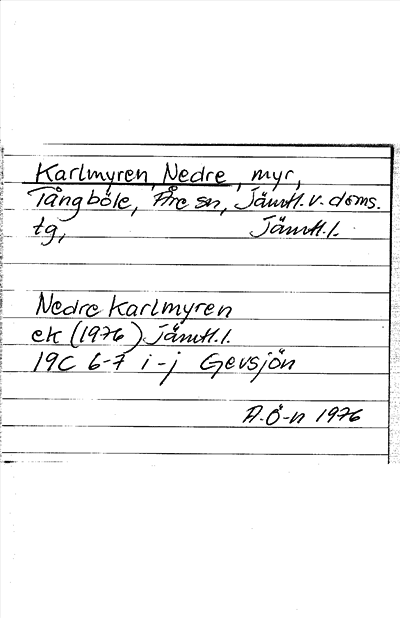 Karlmyren, Nedre, myr,
Tångböle, Åre sn, Jämtl. v. doms.
tg, Jämtl. l.
Nedre Karlmyren
ek (1976) Jämtl. l.
19C 6-7 i-j Gevsjön
A.Ö-n 1976